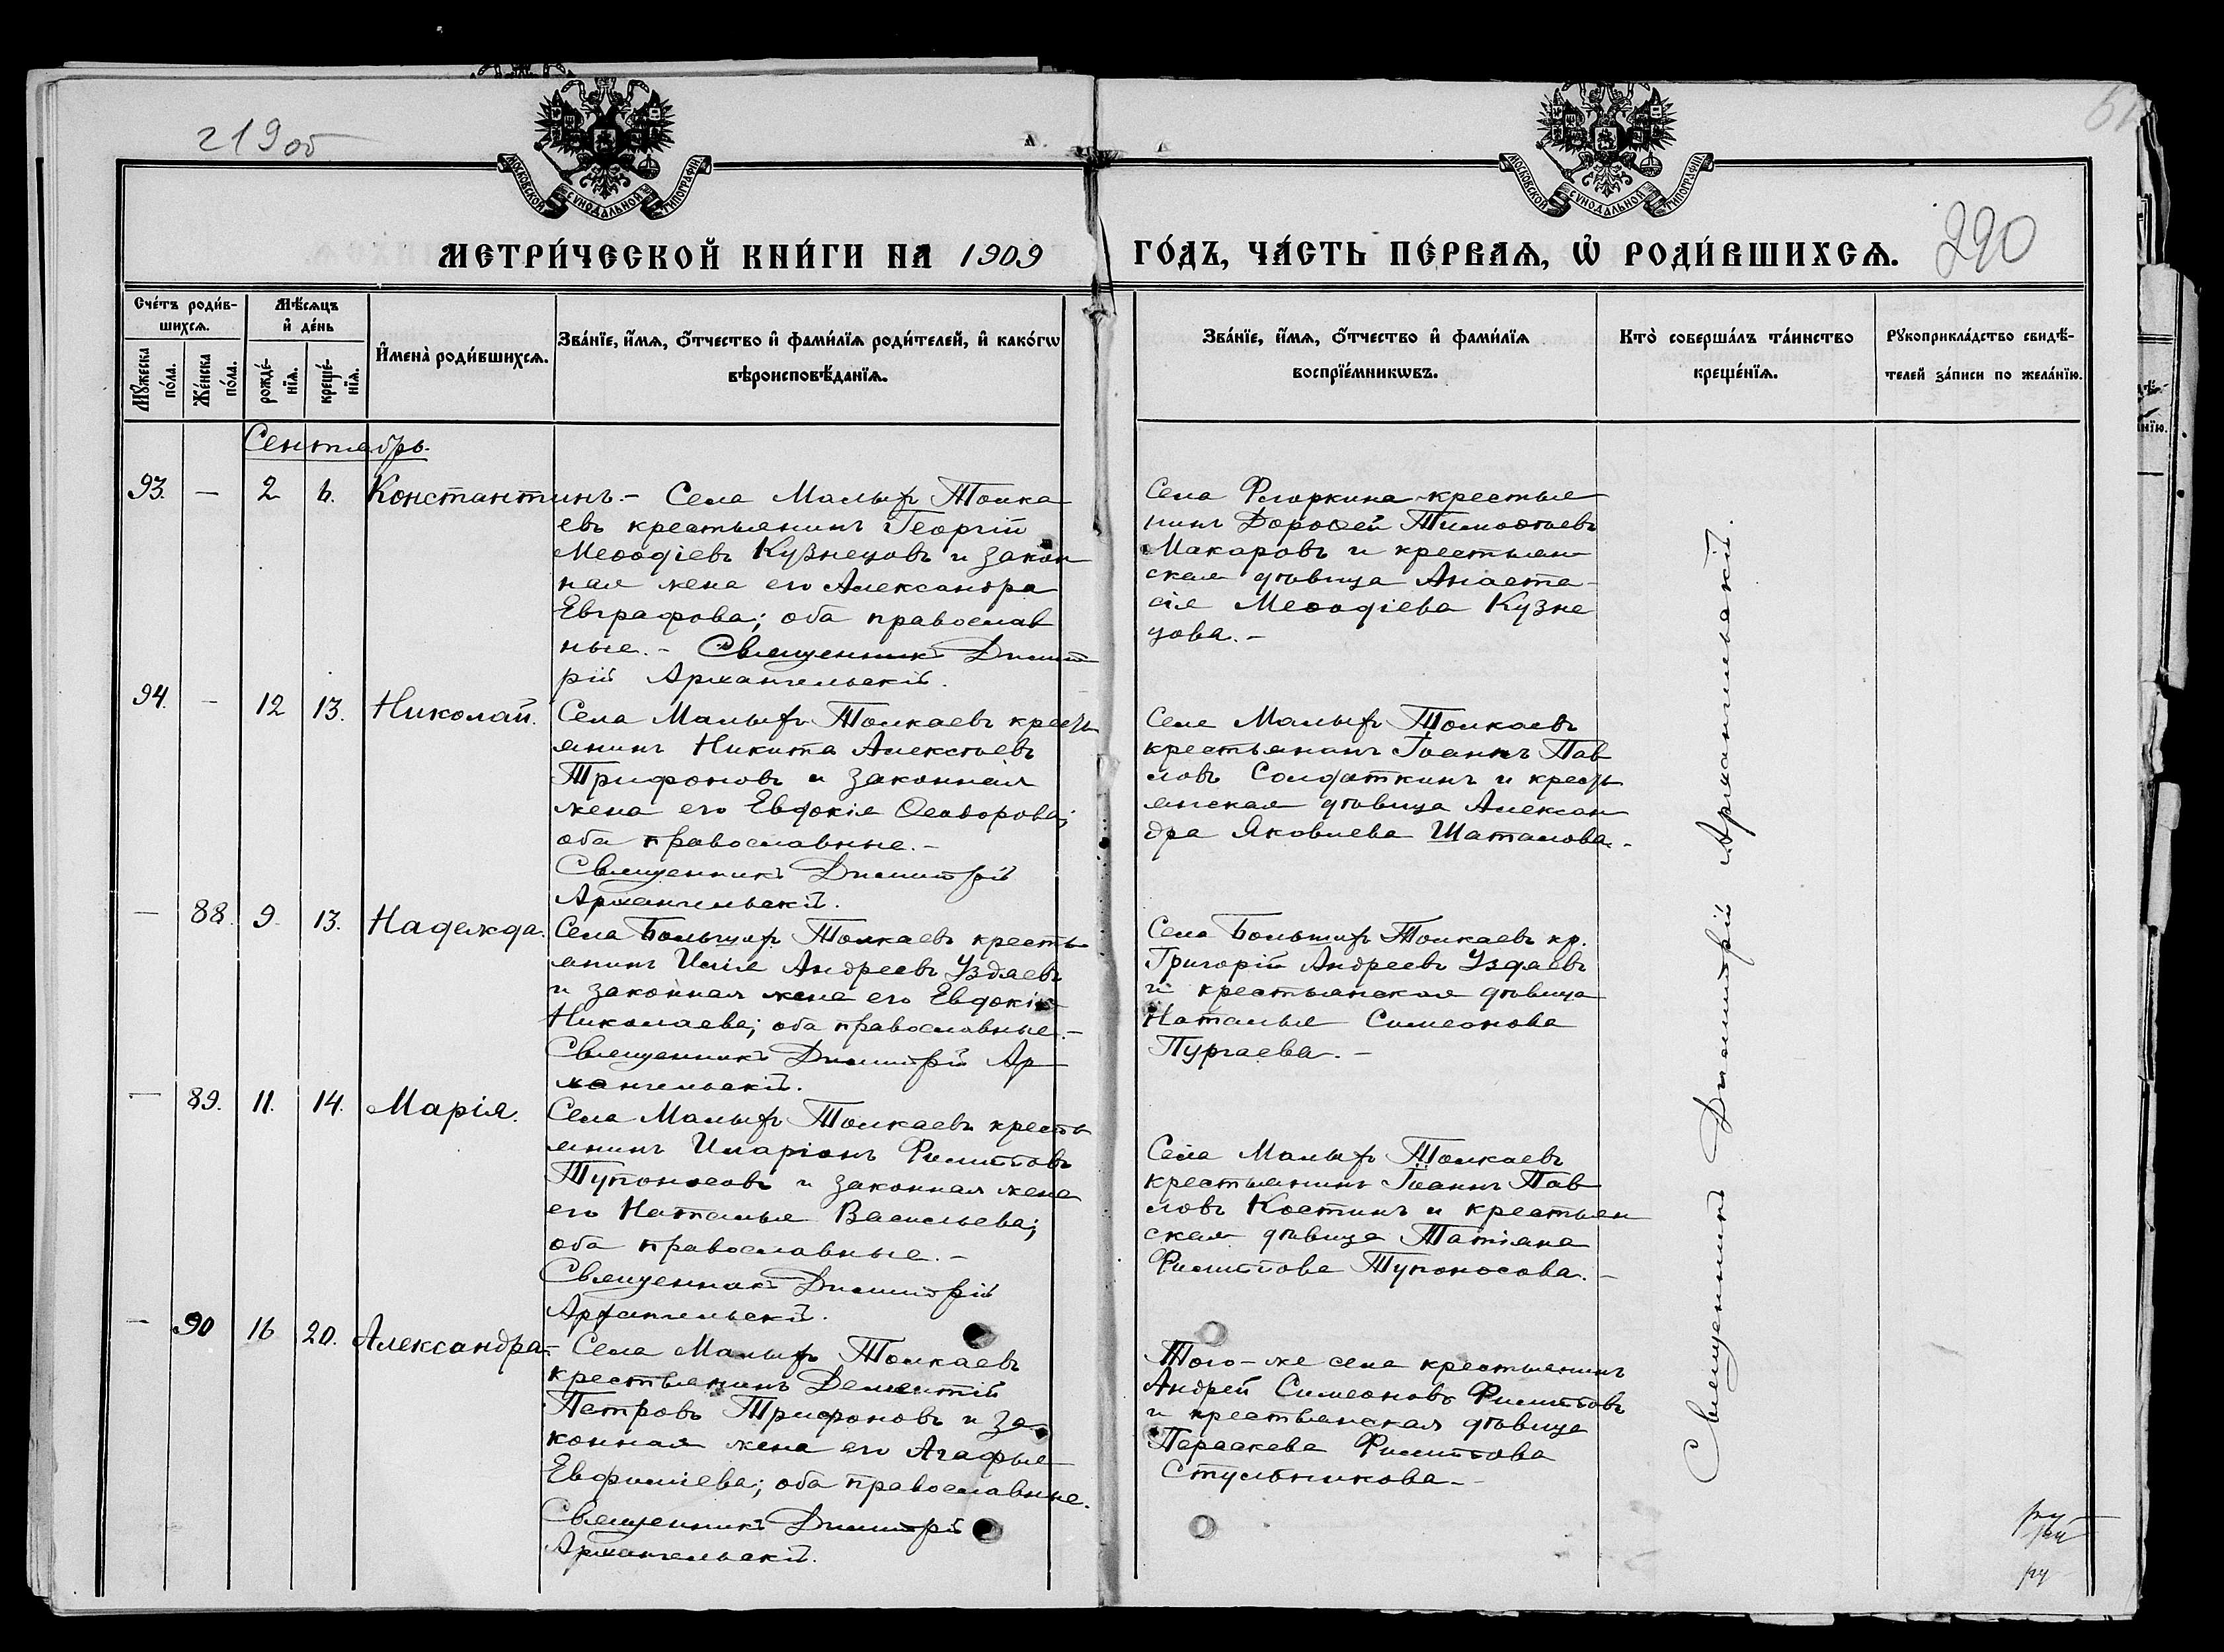 219 об
МОСКОВСКОЙ СѴНОДАЛЬНОЙ ТИПОГРАФІИ
МОСКОВСКОЙ СѴНОДАЛЬНОЙ ТИПОГРАФІИ
МЕТРИ́ЧЕСКОЙ КНИ́ГИ НА 1909 ГО́ДЪ, ЧА́СТЬ ПЕ́РВАѦ, Ѡ҆ РОДИ́ВШИХСѦ.
290
Сче́тъ роди́в-
шихсѧ.
Мꙋ́жеска по́ла.
Же́нска по́ла.
Мѣ́сѧцъ
и҆ де́нь
рожде́-нїѧ.
креще́-нїѧ.
И҆мена̀ роди́вшихсѧ.
Зва́нїе, и҆́мѧ, ѻ҆́тчество и҆ фами́лїѧ роди́телей, и҆ како́гѡ
вѣроисповѣ́данїѧ.
Зва́нїе, и҆́мѧ, ѻ҆́тчество и҆ фами́лїѧ
воспрїе́мникѡвъ.
Кто̀ соверша́лъ та́инство
креще́нїѧ.
Рꙋкоприкла́дство свидѣ́-
телей за́писи по жела́нїю.
Сентябрь.
93. — 2 6. Константинъ. - Села Малыхъ Толка
евъ крестьянинъ Георгій
Меѳодіевъ Кузнецовъ и закон
ная жена его Александра
Евграфова; оба православ
ные. - Священникъ Димит
рій Архангельскій.
Села Фюркина крестья
нинъ Дороѳей Тимоѳѣевъ
Макаровъ и крестьян
ская дѣвица Анаста-
сія Меѳодіева Кузне
цова. -
94. — 12 13. Николай.
Села Малыхъ Толкаевъ кресть
янинъ Никита Алексѣевъ
Трифоновъ и законная
жена его Евдокія Ѳеодорова;
оба православные. -
Священникъ Димитрій
Архангельскій.
Села Малыхъ Толкаевъ
крестьянинъ Іоаннъ Пав
ловъ Солдаткинъ и кресть
янская дѣвица Алексан
дра Яковлева Шаталова. -
— 88. 9. 13. Надежда.
Села Большихъ Толкаевъ кресть
янинъ Илія Андреевъ Уздяевъ
и законная жена его Евдокія
Николаева; оба православные. -
Священникъ Димитрій Ар
хангельскій.
Села Большихъ Толкаевъ кр.
Григорій Андреевъ Уздяевъ
и крестьянская дѣвица
Наталья Симеонова
Пургаева. -
— 89. 11. 14. Марія.
Села Малыхъ Толкаевъ кресть
янинъ Иларіонъ Филипповъ
Тупоносовъ и законная жена
его Наталья Васильева;
оба православные. -
Священникъ Димитрій
Архангельскій.
Села Малыхъ Толкаевъ
крестьянинъ Іоаннъ Пав
ловъ Костинъ и крестьян
ская дѣвица Татіана
Филиппова Тупоносова. -
— 90 16 20. Александра. -
Села Малыхъ Толкаевъ
крестьянинъ Дементій
Петровъ Трифоновъ и за
конная жена его Агафья
Евфиміева; оба православные.
Священникъ Димитрій
Архангельскій.
Того-же села крестьянинъ
Андрей Симеоновъ Филипповъ
и крестьянская дѣвица
Параскева Филиппова
Стульникова. -
Священникъ Димитрій Архангельскій.